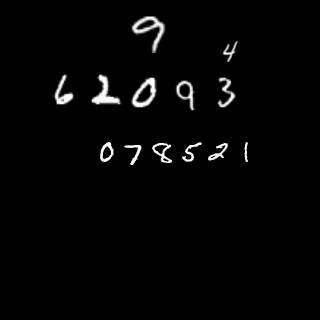 9
4
62093
078521